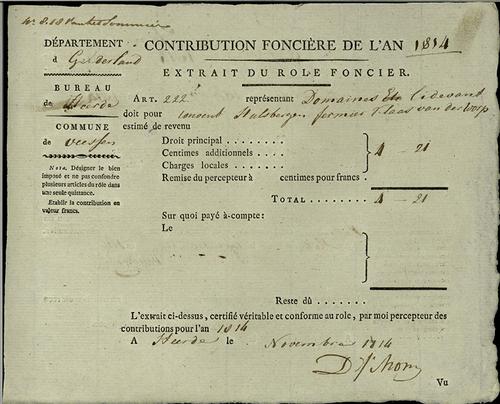 DÉPARTEMENT
d Gelderland
BUREAU
de Heerde
COMMUNE
de veessen
Nota. Désigner le bien
imposé et ne pas confondre
plusieurs articles du rôle dans
une seule quittance.
Etablir la contribution en
valeur francs.
CONTRIBUTION FONCIÈRE DE L'AN 1814
EXTRAIT DU ROLE FONCIER.
ART. 222 représentant Domaines Etc cidevant
doit pour convent Hulsbergen fermier Klaas van der worp
estimé de revenu
Droit principal
Centimes additionnels
Charges locales
4 - 21
Remise du percepteur à centimes pour francs
TOTAL 4 - 21
Sur quoi payé à-compte:
Le
Reste dû
L'exwait ci-dessus, certifié véritable et conforme au role, par moi percepteur des
contributions pour l'an 1814
A Heerde le Novembre 1814
Vu